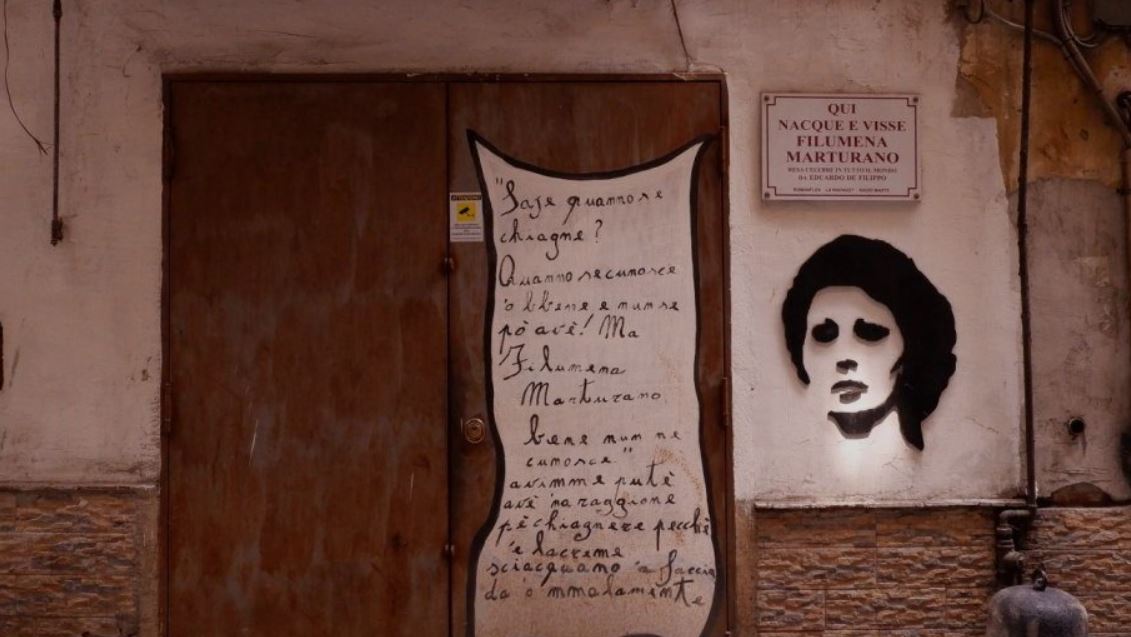 "Saje quanno se
chiagne?
Quanno se cunosce
'o bbene e nun se
pò avé! Ma
Filumena
Marturano
bene nun ne
cunosce"
avimme putè
avè 'na raggione
pè chiagnere pecchè
'e lacreme
sciacquano 'a faccia
da 'o mmalamente
ATTENZIONE
QUI
NACQUE E VISSE
FILUMENA
MARTURANO
RESA CELEBRE IN TUTTO IL MONDO
DA EDUARDO DE FILIPPO